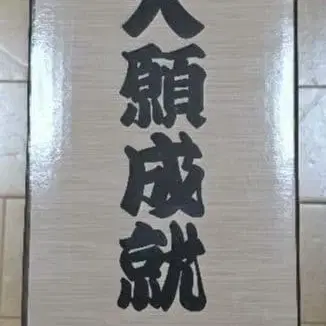 大願成就